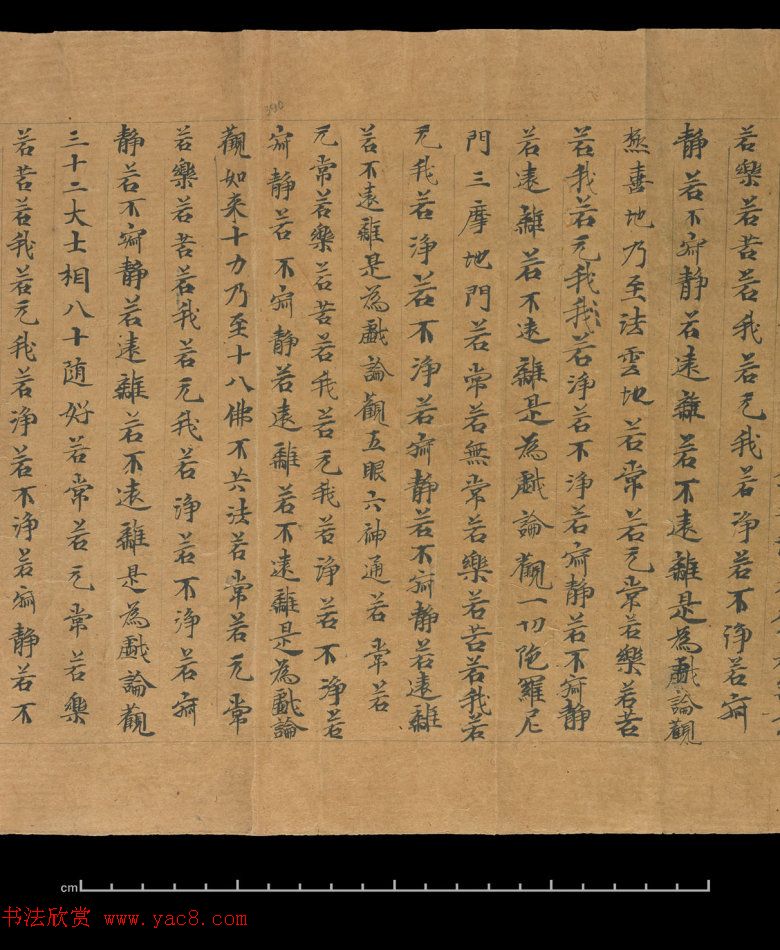 若樂若苦若我若无我若淨若不淨若寂
靜若不寂靜若遠離若不遠離是為戲論觀
極喜地乃至法雲地若常若无常若樂若苦
若我若无我我若淨若不淨若寂靜若不寂靜
若遠離若不遠離是為戲論觀一切陁羅尼
門三摩地門若常若無常若樂若苦若我若
无我若淨若不淨若寂靜若不寂靜若遠離
若不遠離是為戲論觀五眼六神通若常若
无常若樂若苦若我若无我若淨若不淨若
寂靜若不寂靜若遠離若不遠離是為戲論
觀如來十力乃至十八佛不共法若常若无常
若樂若苦若我若无我若淨若不淨若寂
靜若不寂靜若遠離若不遠離是為戲論觀
三十二大士相八十随好若常若无常若樂
若苦若我若无我若淨若不淨若寂靜若不
390
cm
书法欣赏 www.yac8.com